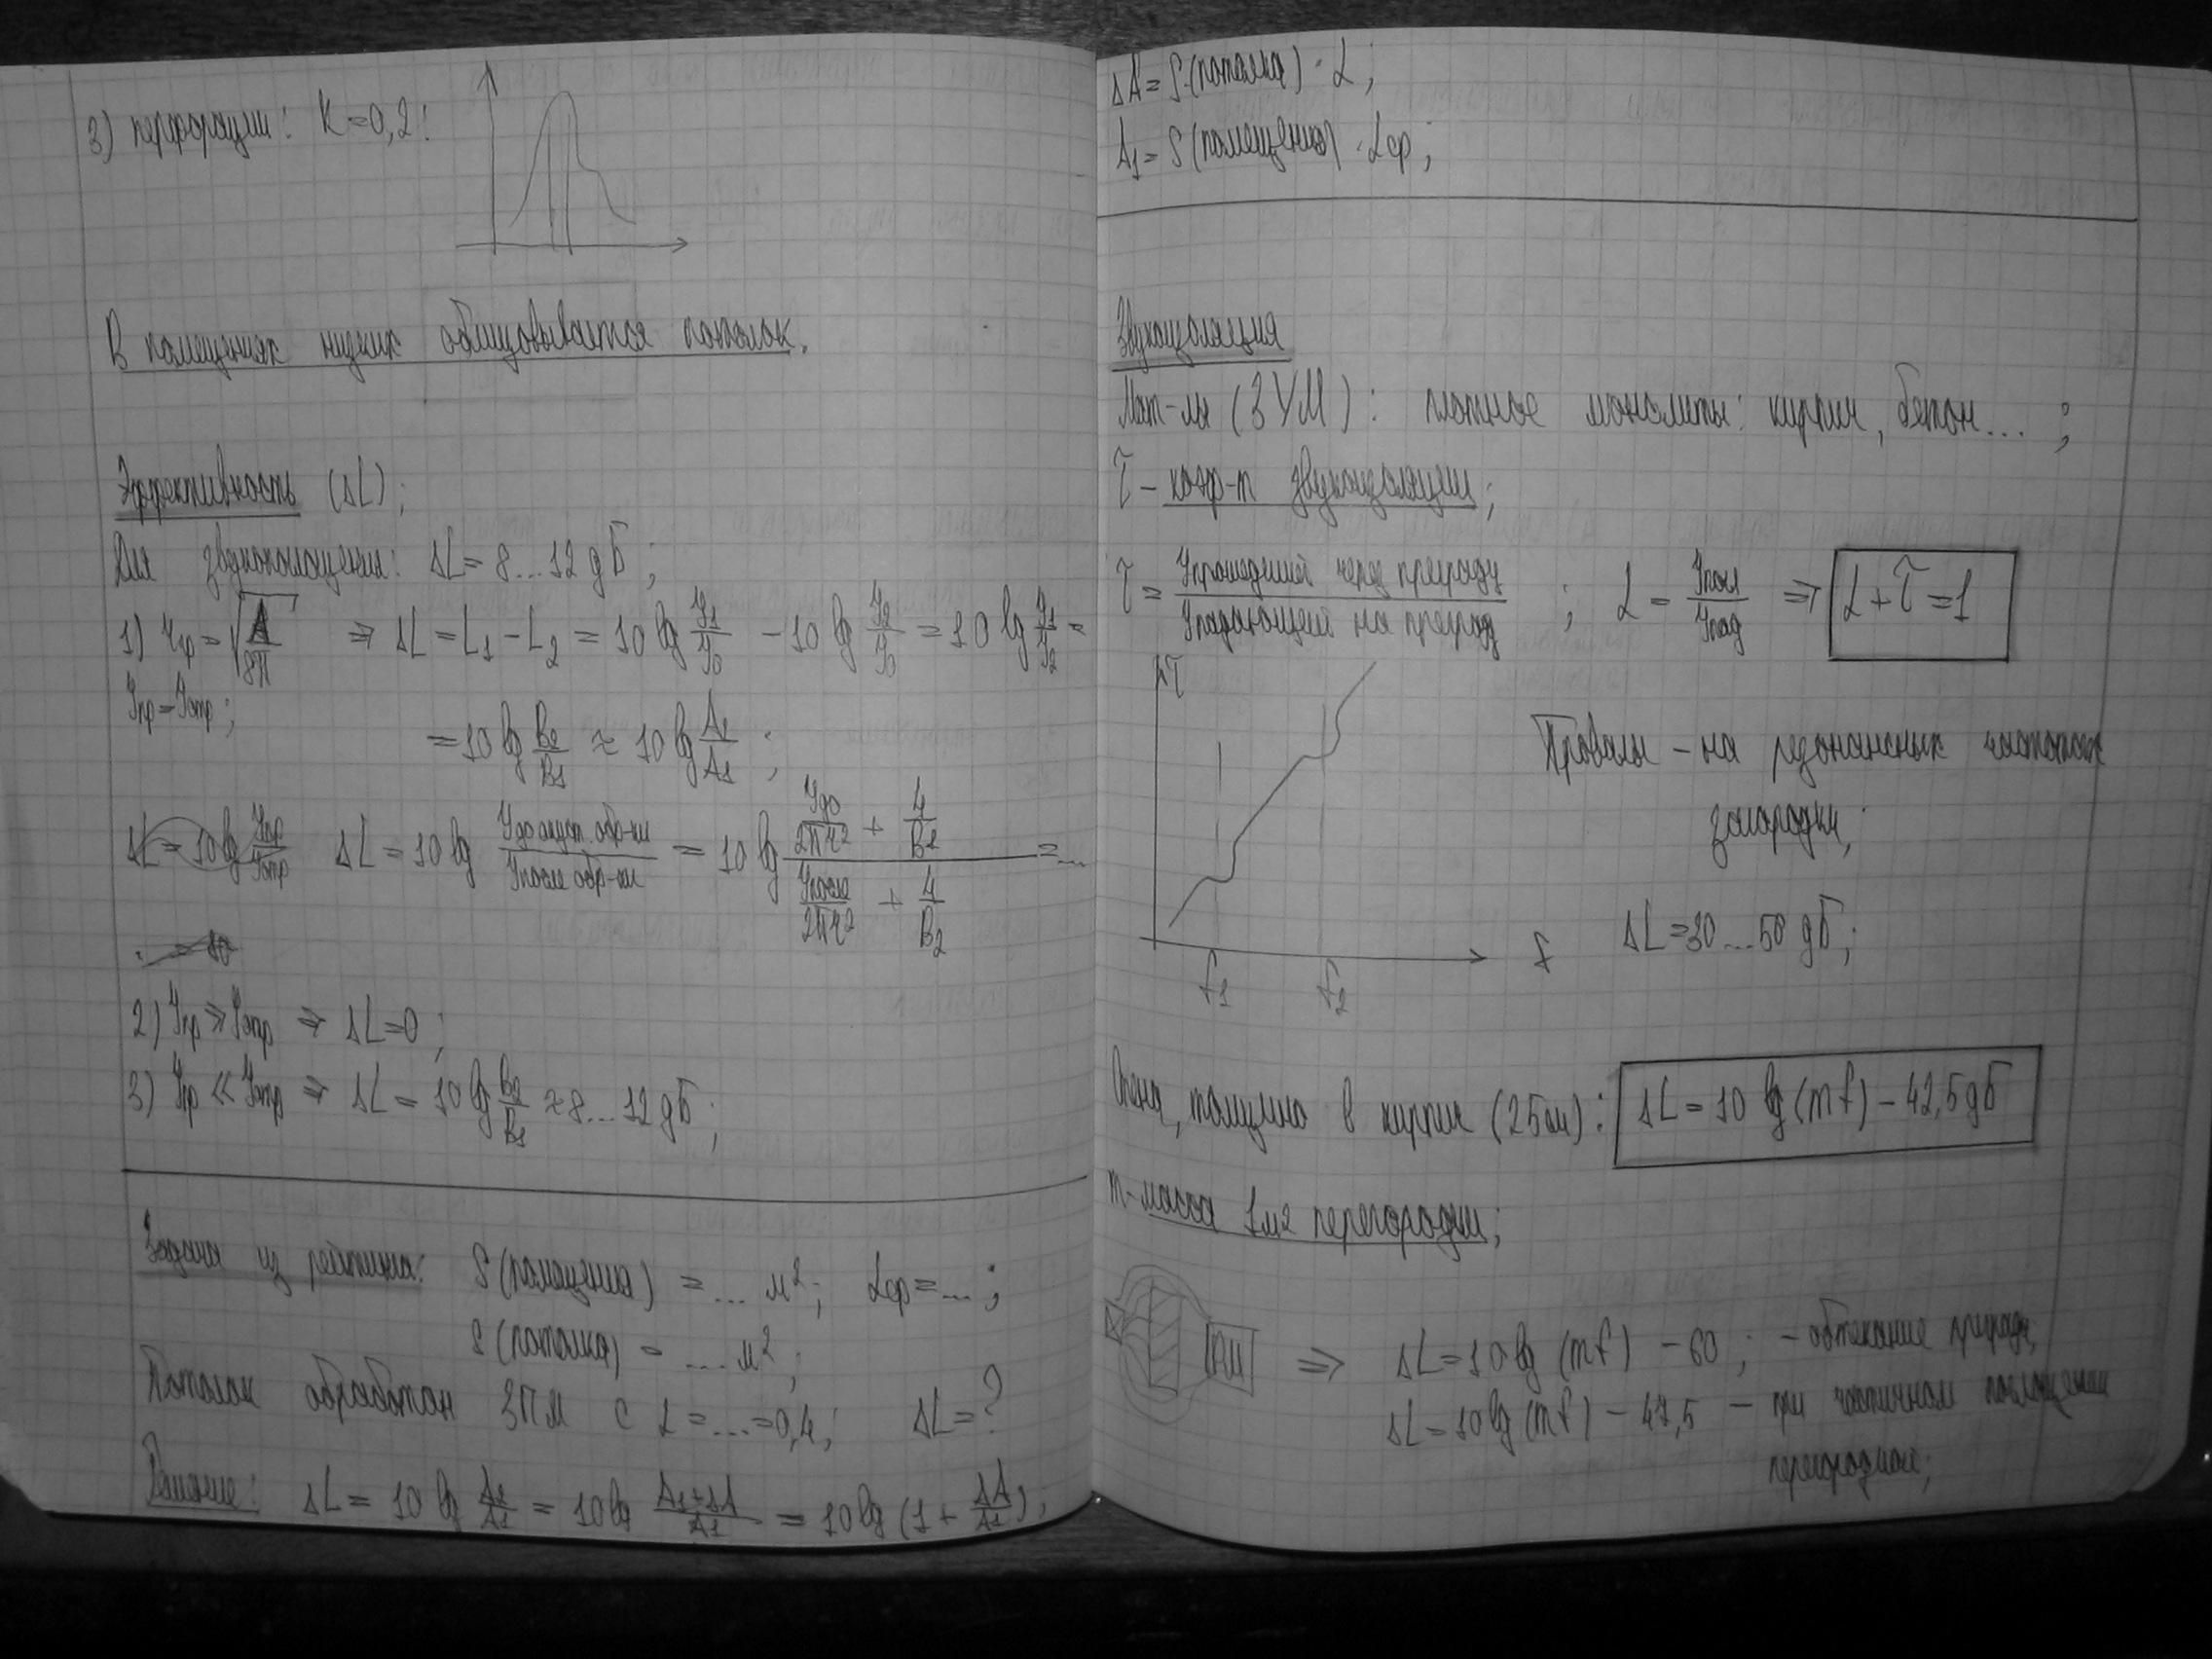 3) перфорации: K=0,2:
В помещениях низких облицовывается потолок.
Эффективность (ΔL);
Для звукопоглощения: ΔL = 8...12 дБ;
1) r_пр = √(A/8π) ⇒ ΔL = L₁ - L₂ = 10 lg J₁/J₀ - 10 lg J₂/J₀ = 10 lg J₁/J₂ =
J_пр = J_отр;
= 10 lg B₂/B₁ ≈ 10 lg A₂/A₁;
ΔL = 10 lg J_до акуст. обр-ки / J_после обр-ки = 10 lg (J_до/2πr² + 4/B₁) / (J_после/2πr² + 4/B₂) = ...
2) J_пр ≫ J_отр ⇒ ΔL = 0;
3) J_пр ≪ J_отр ⇒ ΔL = 10 lg B₂/B₁ ≈ 8...12 дБ;
Задача из рейтинга: S(помещения) = ... м²; α_ср = ...;
S(потолка) = ... м²;
Потолок обработан ЗПМ с α = ... = 0,4; ΔL = ?
Решение: ΔL = 10 lg A₂/A₁ = 10 lg (A₁+ΔA)/A₁ = 10 lg (1 + ΔA/A₁);
ΔA = S(потолка) · α;
A₁ = S(помещения) · α_ср;
Звукоизоляция
Мат-лы (ЗУМ): плотные монолиты: кирпич, бетон...;
τ - коэф-т звукоизоляции;
τ = J_прошедший через преграду / J_падающей на преград ; α = J_погл/J_пад ⇒ α + τ = 1
τ
Провалы - на резонансных частотах
f
f₁ f₂
ΔL = 30...50 дБ;
Стена, толщина в кирпич (25см): ΔL = 10 lg (mf) - 42,5 дБ
m - масса 1м² перегородки;
⇒ ΔL = 10 lg (mf) - 60; - обтекание преграды,
ΔL = 10 lg (mf) - 47,5 - при частичном поглощении
перегородкой;